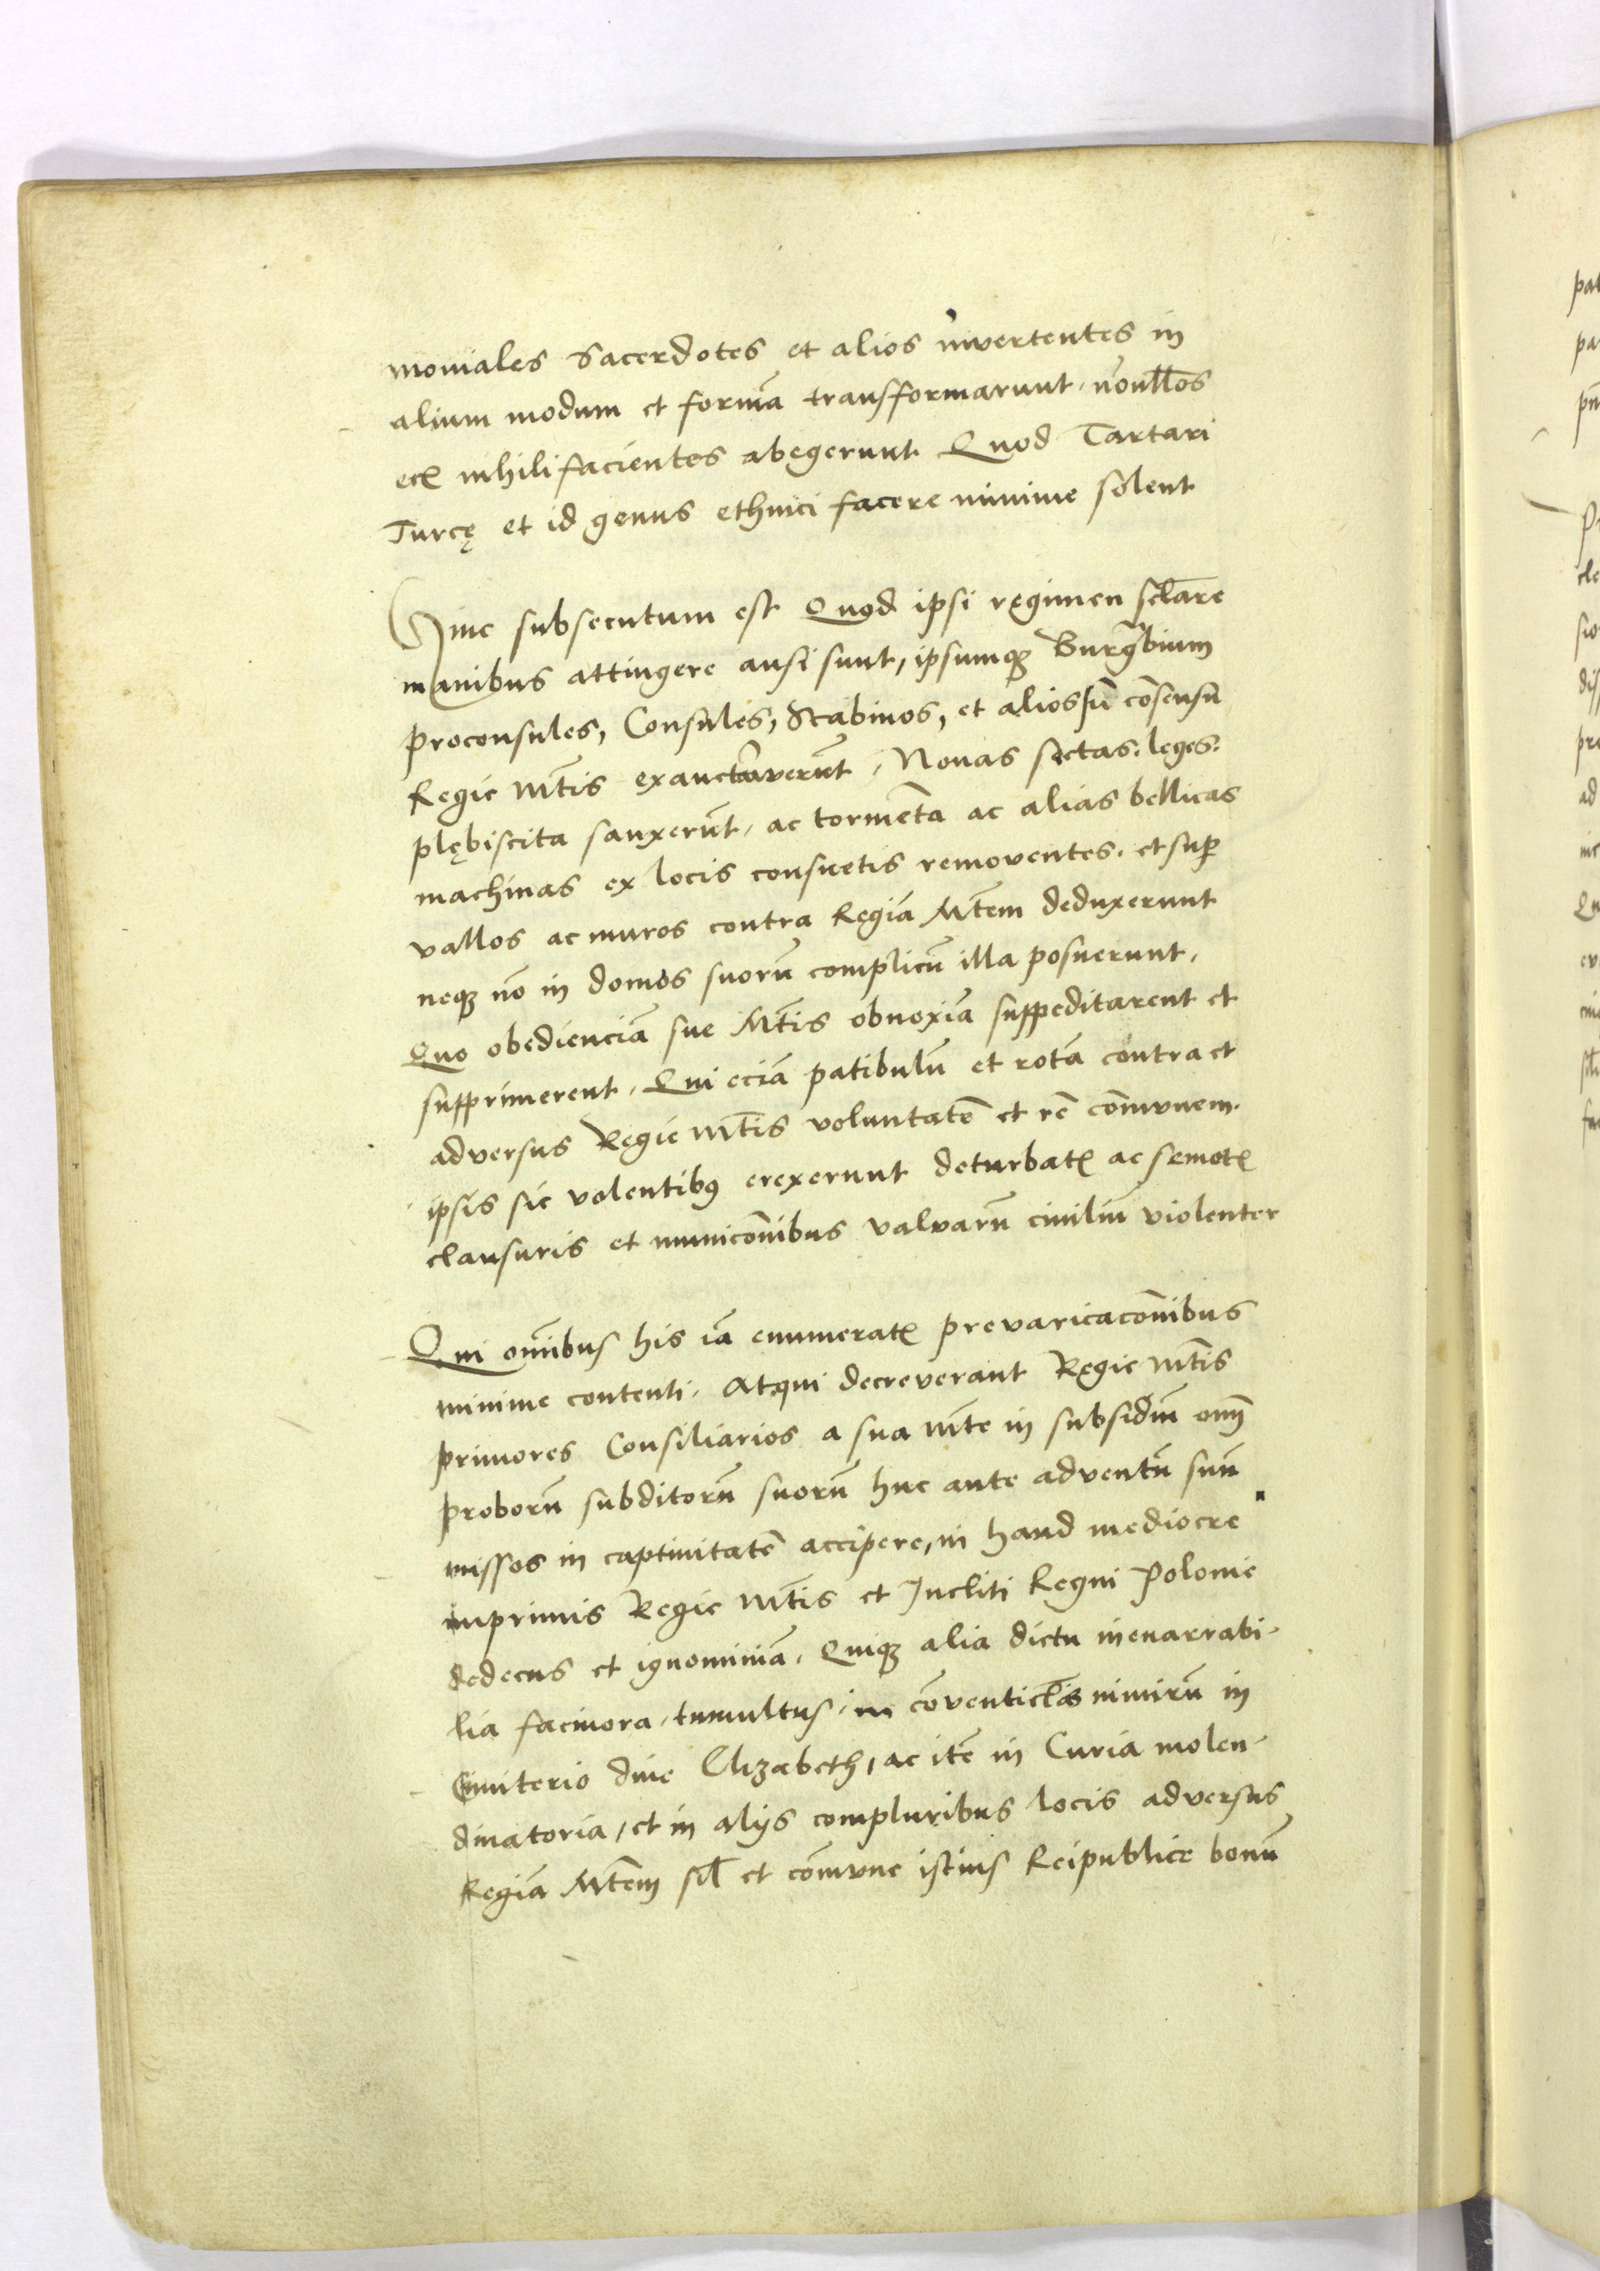 moniales Sacerdotes et alios invertentes in
alium modum et formā transformarunt, nōnll̄os
ecl̄ nihilifacientes abegerunt Quod Tartari
Turcę et id genus ethnici facere minime solent
Hinc subsecutum est Quod ipsi regimen scl̄are
manibus attingere ausi sunt, ipsumqꝫ Burgrabium
proconsules, Consules, Scabinos, et alios sū cōsensu
Regie Mt̄is exauctoraverūt, Nouas sectas. leges.
plębiscita sanxerūt, ac tormēta ac alias bellicas
machinas ex locis consuetis removentes, et suꝑ
vallos ac muros contra Regiā Mt̄em deduxerunt
neqꝫ nō in domos suorū complicū illa posuerunt,
Quo obedienciā sue Mt̄is obnoxiā suppeditarent et
supprimerent, Qui eciā patibulū et rotā contra et
adversus Regie Mt̄is voluntatē et rē cōmvnem.
ipsis sic volentibꝰ erexerunt deturbatꝭ ac semotꝭ
clausuris et municōnibus valvarū ciuiliū violenter
Qui om̄ibus his iā enumeratꝭ prevaricacōnibus
minime contenti. Atqui decreverant Regie Mt̄is
primores Consiliarios a sua Mt̄e in subsidiū om̄
proborū subditorū suorū huc ante adventū suū
missos in captiuitatē accipere, in haud mediocre
inprimis Regie Mt̄is et Incliti Regni Polonie
dedecus et ignominiā. Quiqꝫ alia dictu inenarrabi-
lia facinora, tumultus, in cōventicl̄is nimirū in
Cimiterio diue Elizabeth, ac itē in Curia molen-
dinatoria, et in alijs compluribus locis adversus
Regiā Mt̄em sl̄ et cōmvne istius Reipublice bonū